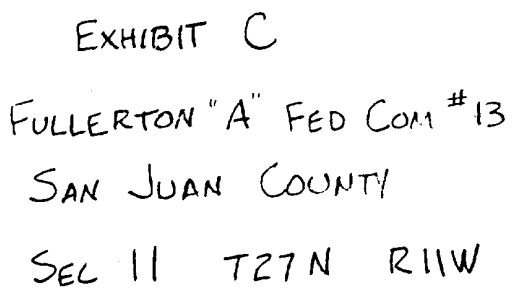 EXHIBIT C
FULLERTON "A" FED COM #13
SAN JUAN COUNTY
SEC 11 T27N R11W